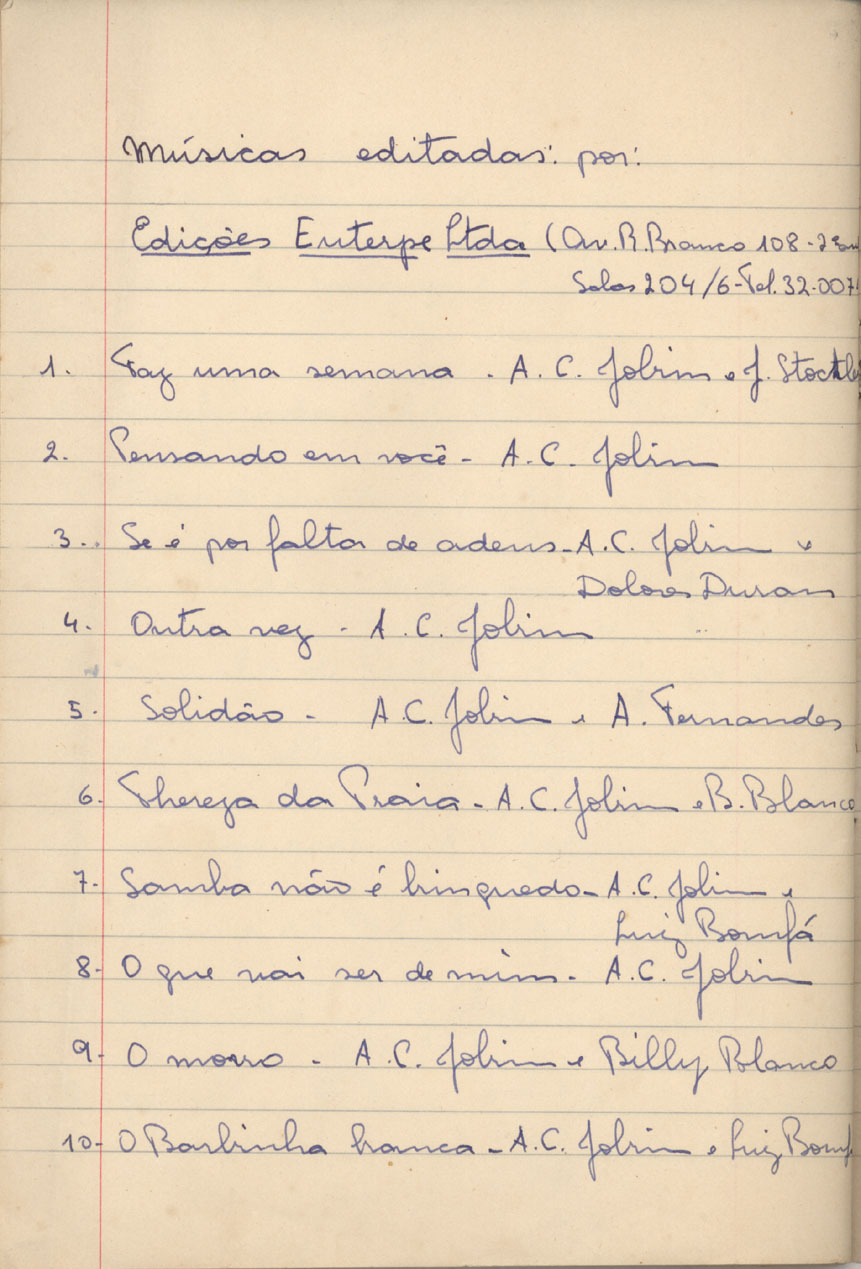 Músicas editadas: por:
Edições Euterpe Ltda (Av. R. Branco 108 - 2º
Salas 204/6 - Tel. 32-007
1. Faz uma semana - A. C. Jobim e J. Stockle
2. Pensando em você - A. C. Jobim
3. Se é por falta de adeus - A. C. Jobim e
Dolores Duran
4. Outra vez - A. C. Jobim
5. Solidão - A. C. Jobim e A. Fernandes
6. Thereza da Praia - A. C. Jobim e B. Blanco
7. Samba não é brinquedo - A. C. Jobim e
Luiz Bomfá
8. O que vai ser de mim - A. C. Jobim
9. O morro - A. C. Jobim e Billy Blanco
10- O Barbinha branca - A. C. Jobim e Luiz Bomf